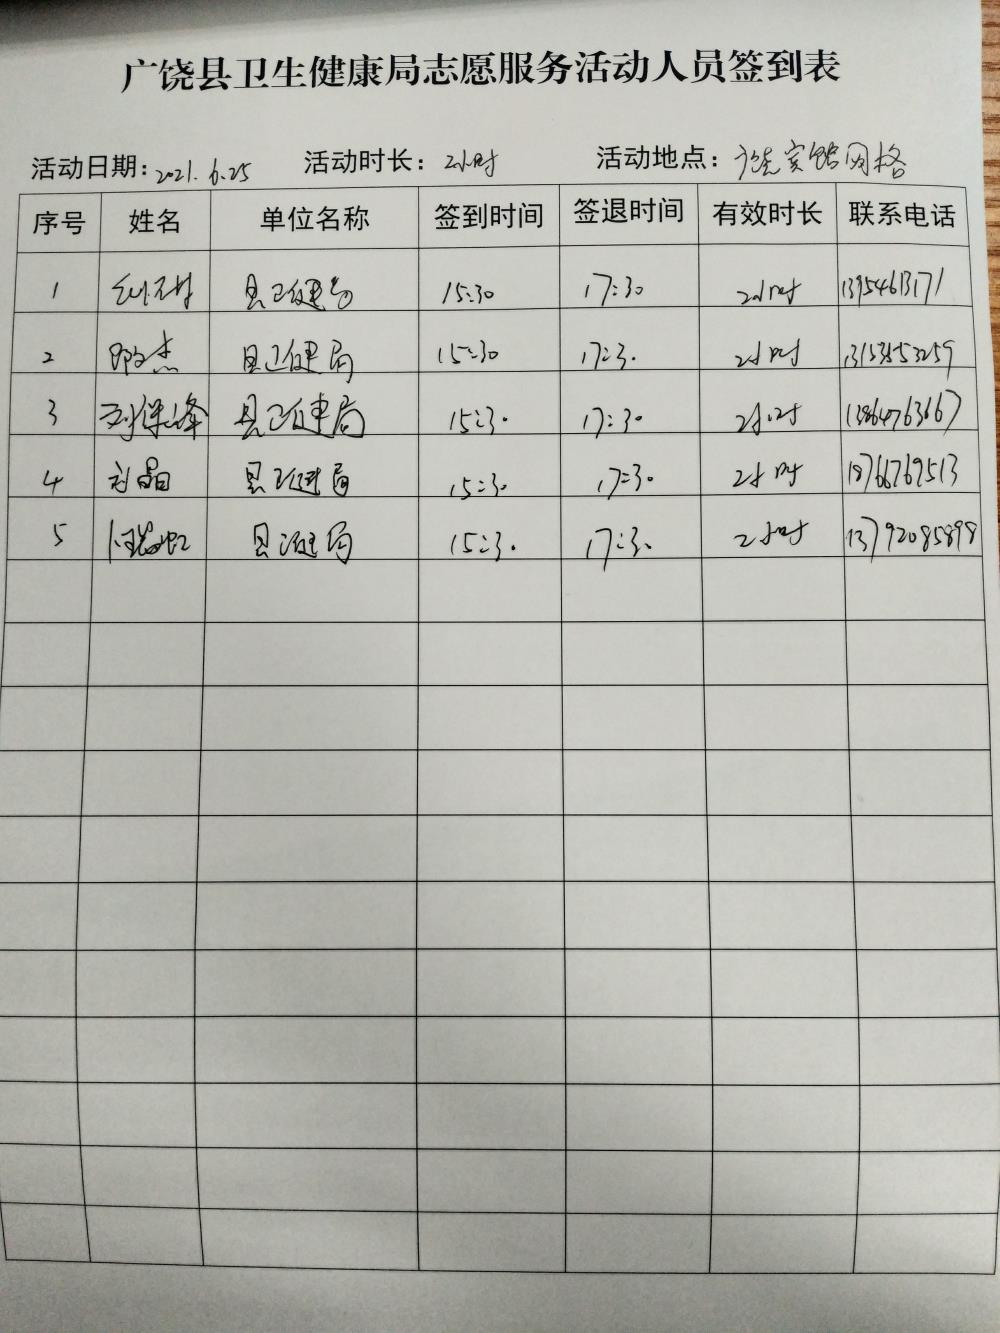 广饶县卫生健康局志愿服务活动人员签到表
活动日期：2021.6.25 活动时长：2小时 活动地点：广饶宾馆网格
序号 姓名 单位名称 签到时间 签退时间 有效时长 联系电话
1 县卫健局 15:30 17:30 2小时 13954613171
2 县卫健局 15:30 17:30 2小时 13153853259
3 刘保峰 县卫健局 15:30 17:30 2小时 13864763667
4 县卫健局 15:30 17:30 2小时 18766769513
5 县卫健局 15:30 17:30 2小时 13792085898